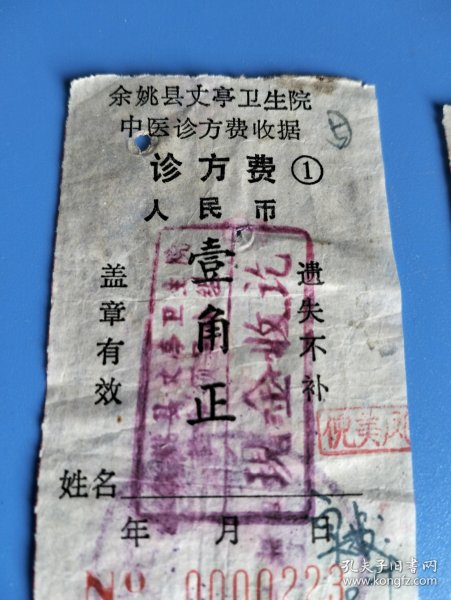 余姚县丈亭卫生院
中医诊方费收据
诊方费①
人民币
壹角正
盖章有效
遗失不补
现金收讫
倪美凤
姓名
年 月 日
No 0000223
孔夫子旧书网
www.kongfz.com